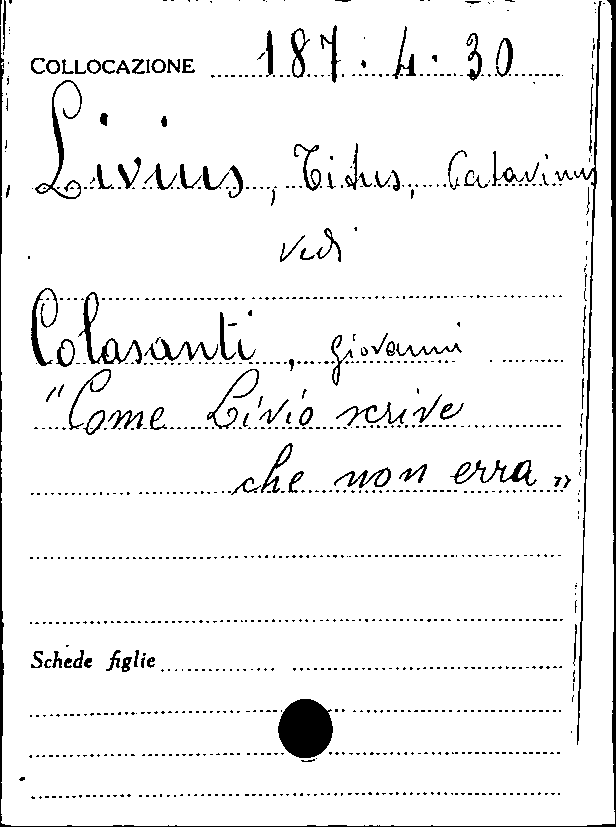 COLLOCAZIONE 187.4.30
Livius, Titus, Patavinus
vedi
Colasanti, Giovanni
"Come Livio scrive
che non erra"
Schede figlie